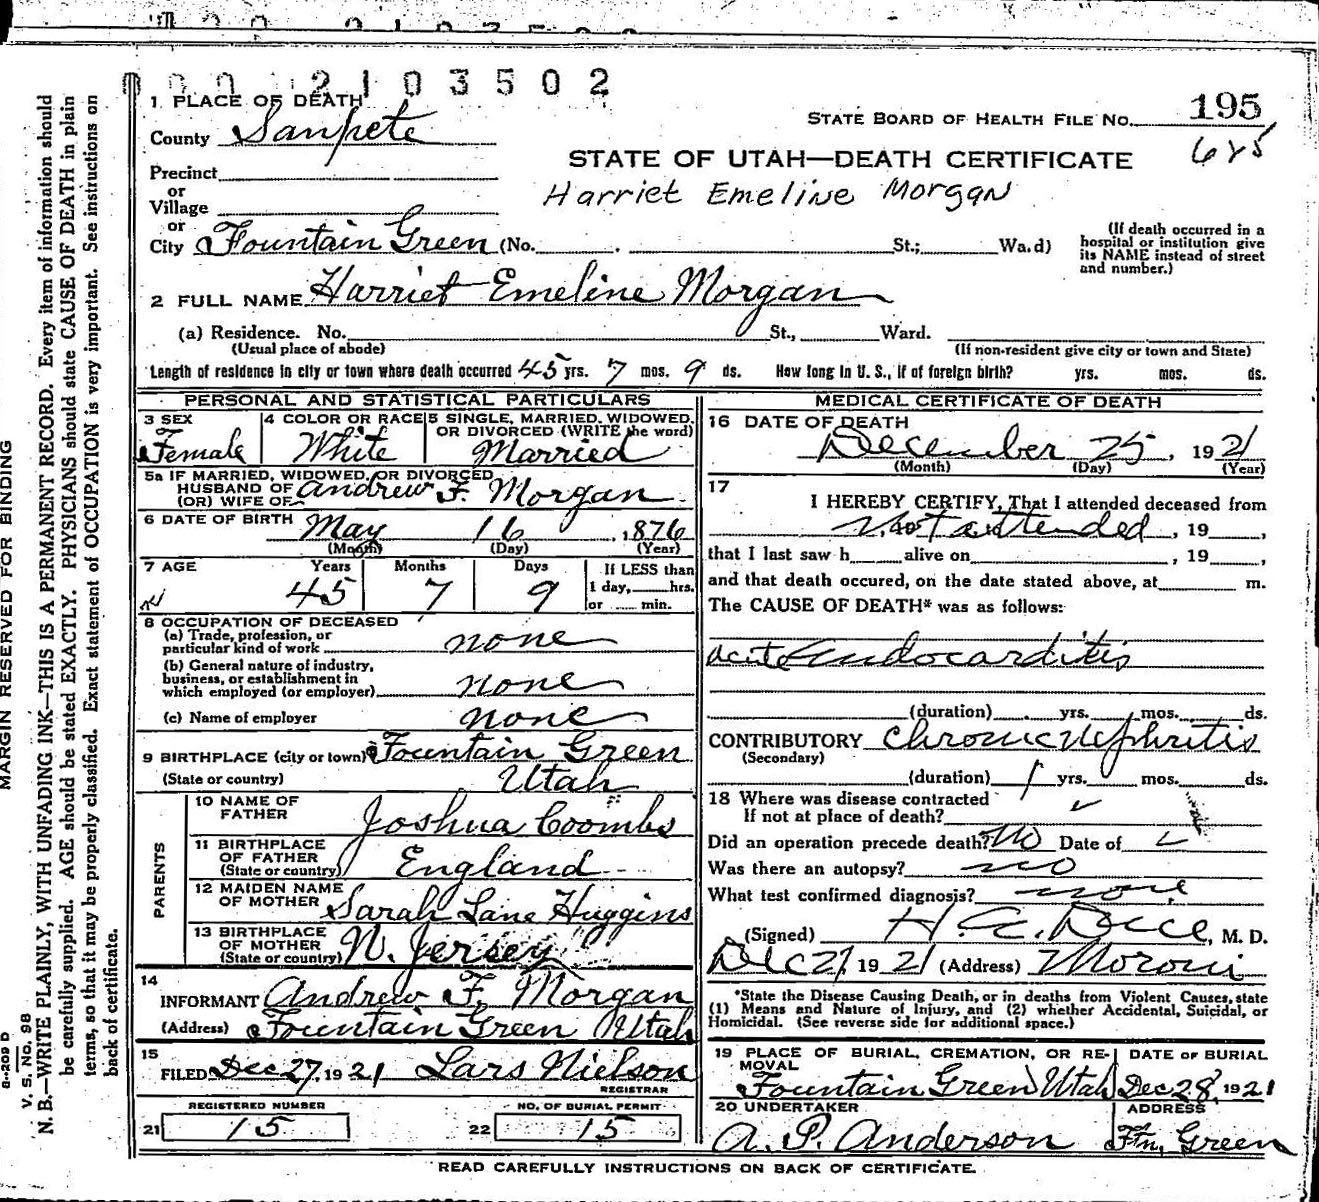 0002103502
1 PLACE OF DEATH
County Sanpete
STATE BOARD OF HEALTH FILE No. 195
685
STATE OF UTAH—DEATH CERTIFICATE
Harriet Emeline Morgan
Precinct
or
Village
or
City Fountain Green (No. St.; Wa.d)
(If death occurred in a
hospital or institution give
its NAME instead of street
and number.)
2 FULL NAME Harriet Emeline Morgan
(a) Residence. No. St., Ward.
(Usual place of abode) (If non-resident give city or town and State)
Length of residence in city or town where death occurred 45 yrs. 7 mos. 9 ds. How long in U. S., if of foreign birth? yrs. mos. ds.
PERSONAL AND STATISTICAL PARTICULARS
3 SEX Female
4 COLOR OR RACE White
5 SINGLE, MARRIED, WIDOWED,
OR DIVORCED (WRITE the word)
Married
5a IF MARRIED, WIDOWED, OR DIVORCED
HUSBAND OF
(OR) WIFE OF Andrew F. Morgan
6 DATE OF BIRTH May 16, 1876
(Month) (Day) (Year)
7 AGE Years Months Days If LESS than
1 day, hrs.
or min.
45 7 9
8 OCCUPATION OF DECEASED
(a) Trade, profession, or
particular kind of work none
(b) General nature of industry,
business, or establishment in
which employed (or employer) none
(c) Name of employer none
9 BIRTHPLACE (city or town) Fountain Green
(State or country) Utah
PARENTS
10 NAME OF
FATHER Joshua Coombs
11 BIRTHPLACE
OF FATHER
(State or country) England
12 MAIDEN NAME
OF MOTHER Sarah Lane Huggins
13 BIRTHPLACE
OF MOTHER
(State or country) N. Jersey
14
INFORMANT Andrew F. Morgan
(Address) Fountain Green Utah
15
FILED Dec 27, 1921 Lars Nielson
REGISTRAR
REGISTERED NUMBER
21 15
NO. OF BURIAL PERMIT
22 15
MEDICAL CERTIFICATE OF DEATH
16 DATE OF DEATH
December 25, 1921
(Month) (Day) (Year)
17
I HEREBY CERTIFY, That I attended deceased from
Not attended, 19 ,
that I last saw h alive on , 19 ,
and that death occured, on the date stated above, at m.
The CAUSE OF DEATH* was as follows:
acute Endocarditis
(duration) yrs. mos. ds.
CONTRIBUTORY Chronic Nephritis
(Secondary)
(duration) 1 yrs. mos. ds.
18 Where was disease contracted
If not at place of death?
Did an operation precede death? No Date of
Was there an autopsy? no
What test confirmed diagnosis? none
(Signed) , M. D.
Dec 27 1921 (Address) Moroni
*State the Disease Causing Death, or in deaths from Violent Causes, state
(1) Means and Nature of Injury, and (2) whether Accidental, Suicidal, or
Homicidal. (See reverse side for additional space.)
19 PLACE OF BURIAL, CREMATION, OR RE-
MOVAL
Fountain Green Utah
DATE OF BURIAL
Dec 28, 1921
20 UNDERTAKER
A. P. Anderson
ADDRESS
Ftn, Green
READ CAREFULLY INSTRUCTIONS ON BACK OF CERTIFICATE.
MARGIN RESERVED FOR BINDING
V. S. NO. 98
N. B.—WRITE PLAINLY, WITH UNFADING INK—THIS IS A PERMANENT RECORD. Every item of information should
be carefully supplied. AGE should be stated EXACTLY. PHYSICIANS should state CAUSE OF DEATH in plain
terms, so that it may be properly classified. Exact statement of OCCUPATION is very important. See instructions on
back of certificate.